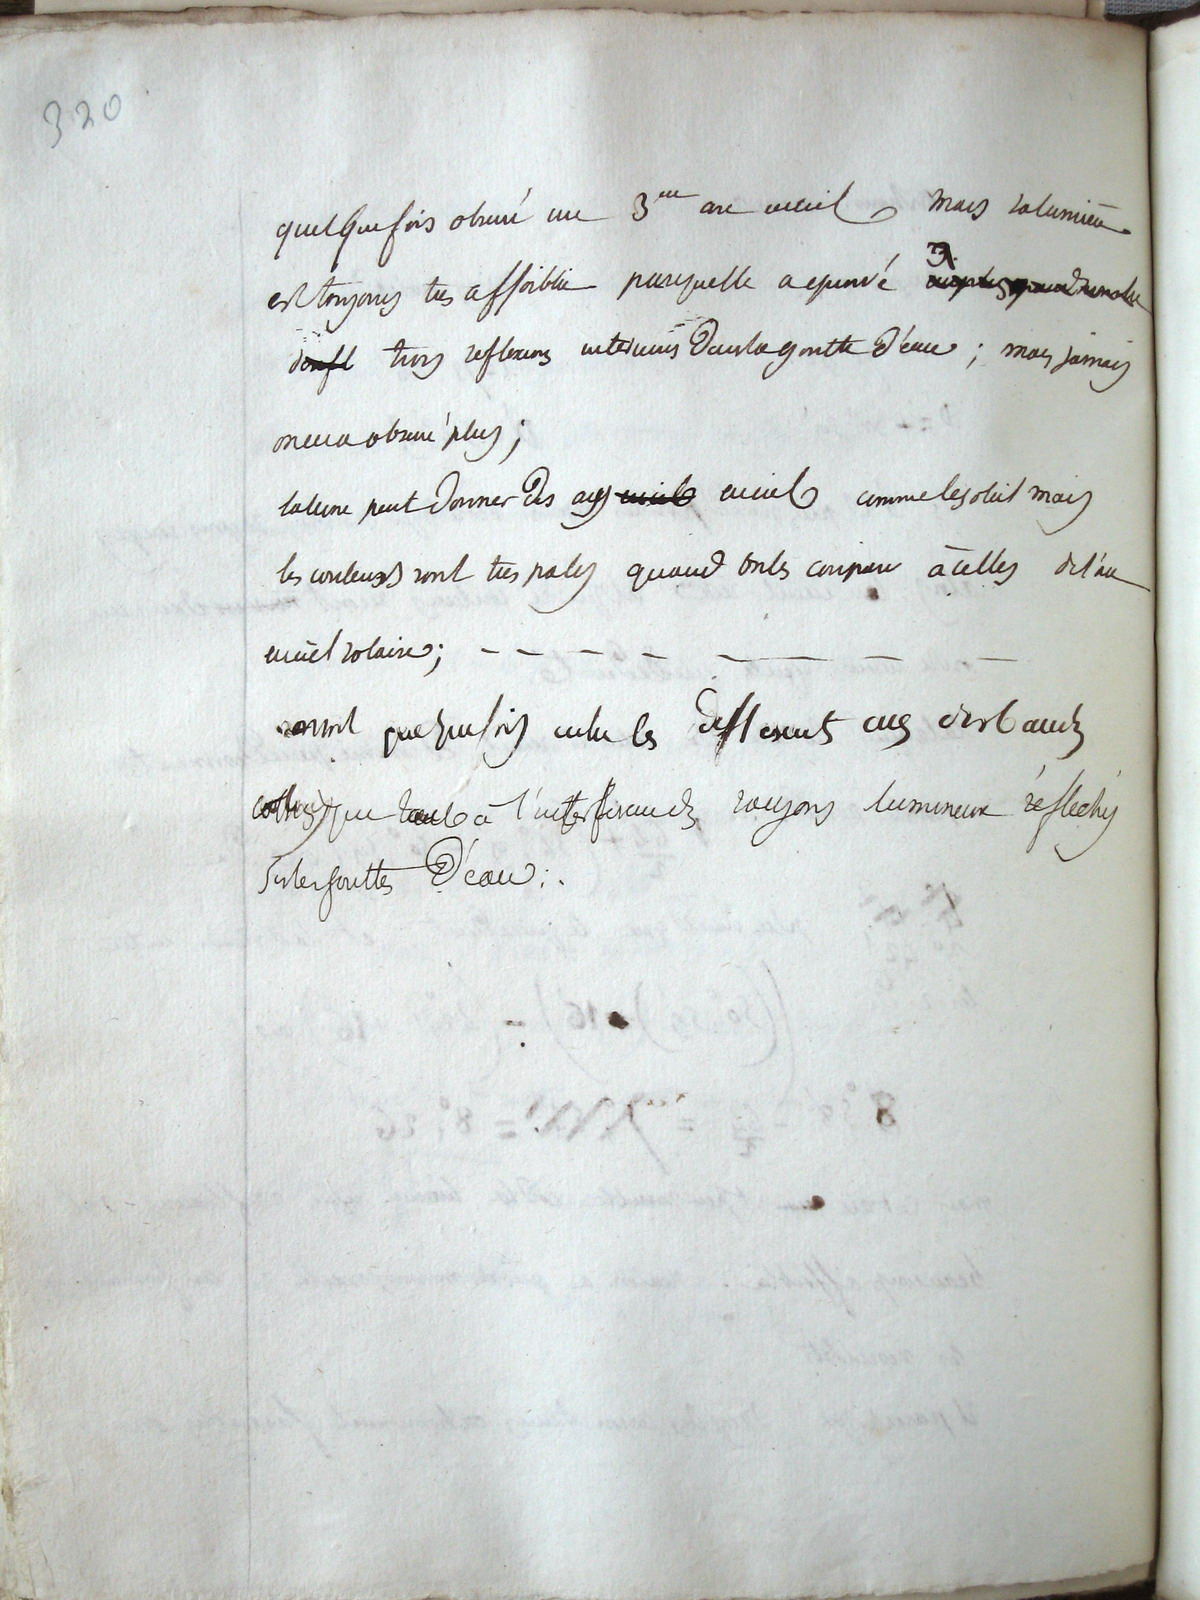 320
quelquefois observé un 3me arc enciel mais salumière
est toujours tres affoiblie parcequelle a eprouvé
trois reflexions interieures dans la goutte d'eau ; mais jamais
on en a observé plus ;
la lune peut donner des arcs enciel comme le soleil mais
les couleurs sont tres pales quand on les compare à celles de l'arc
enciel solaire ; — — — — — — — —
on voit quelquefois entre les differents arcs des bandes
à l'interférence des rayons lumineux réflechis
sur les gouttes d'eau :.